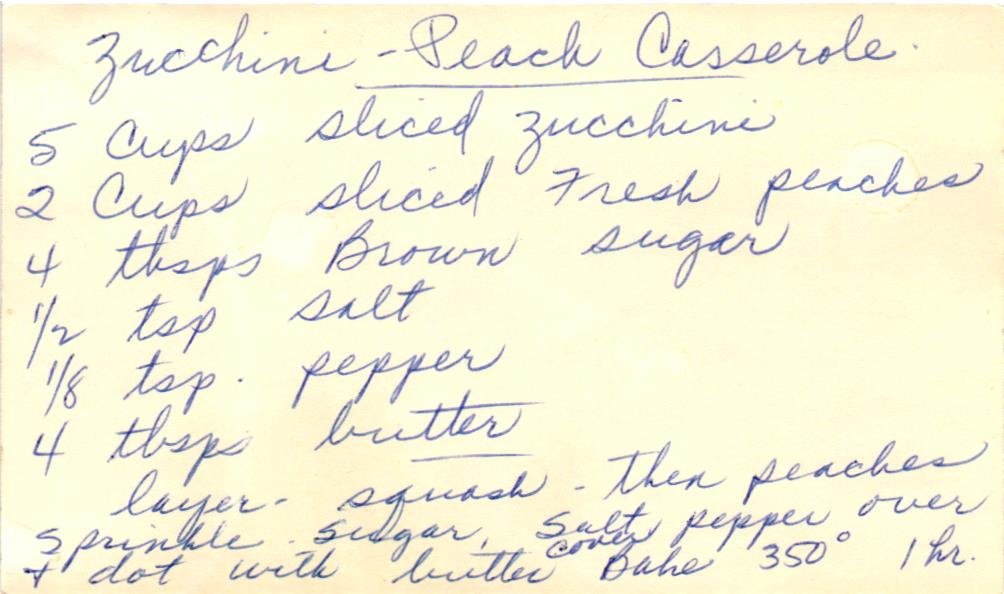 Zucchini - Peach Casserole.
5 Cups sliced zucchini
2 Cups sliced Fresh peaches
4 tbsps Brown sugar
1/2 tsp salt
1/8 tsp. pepper
4 tbsps butter
layer - squash - then peaches
Sprinkle sugar, salt pepper over
+ dot with butter cover Bake 350° 1 hr.